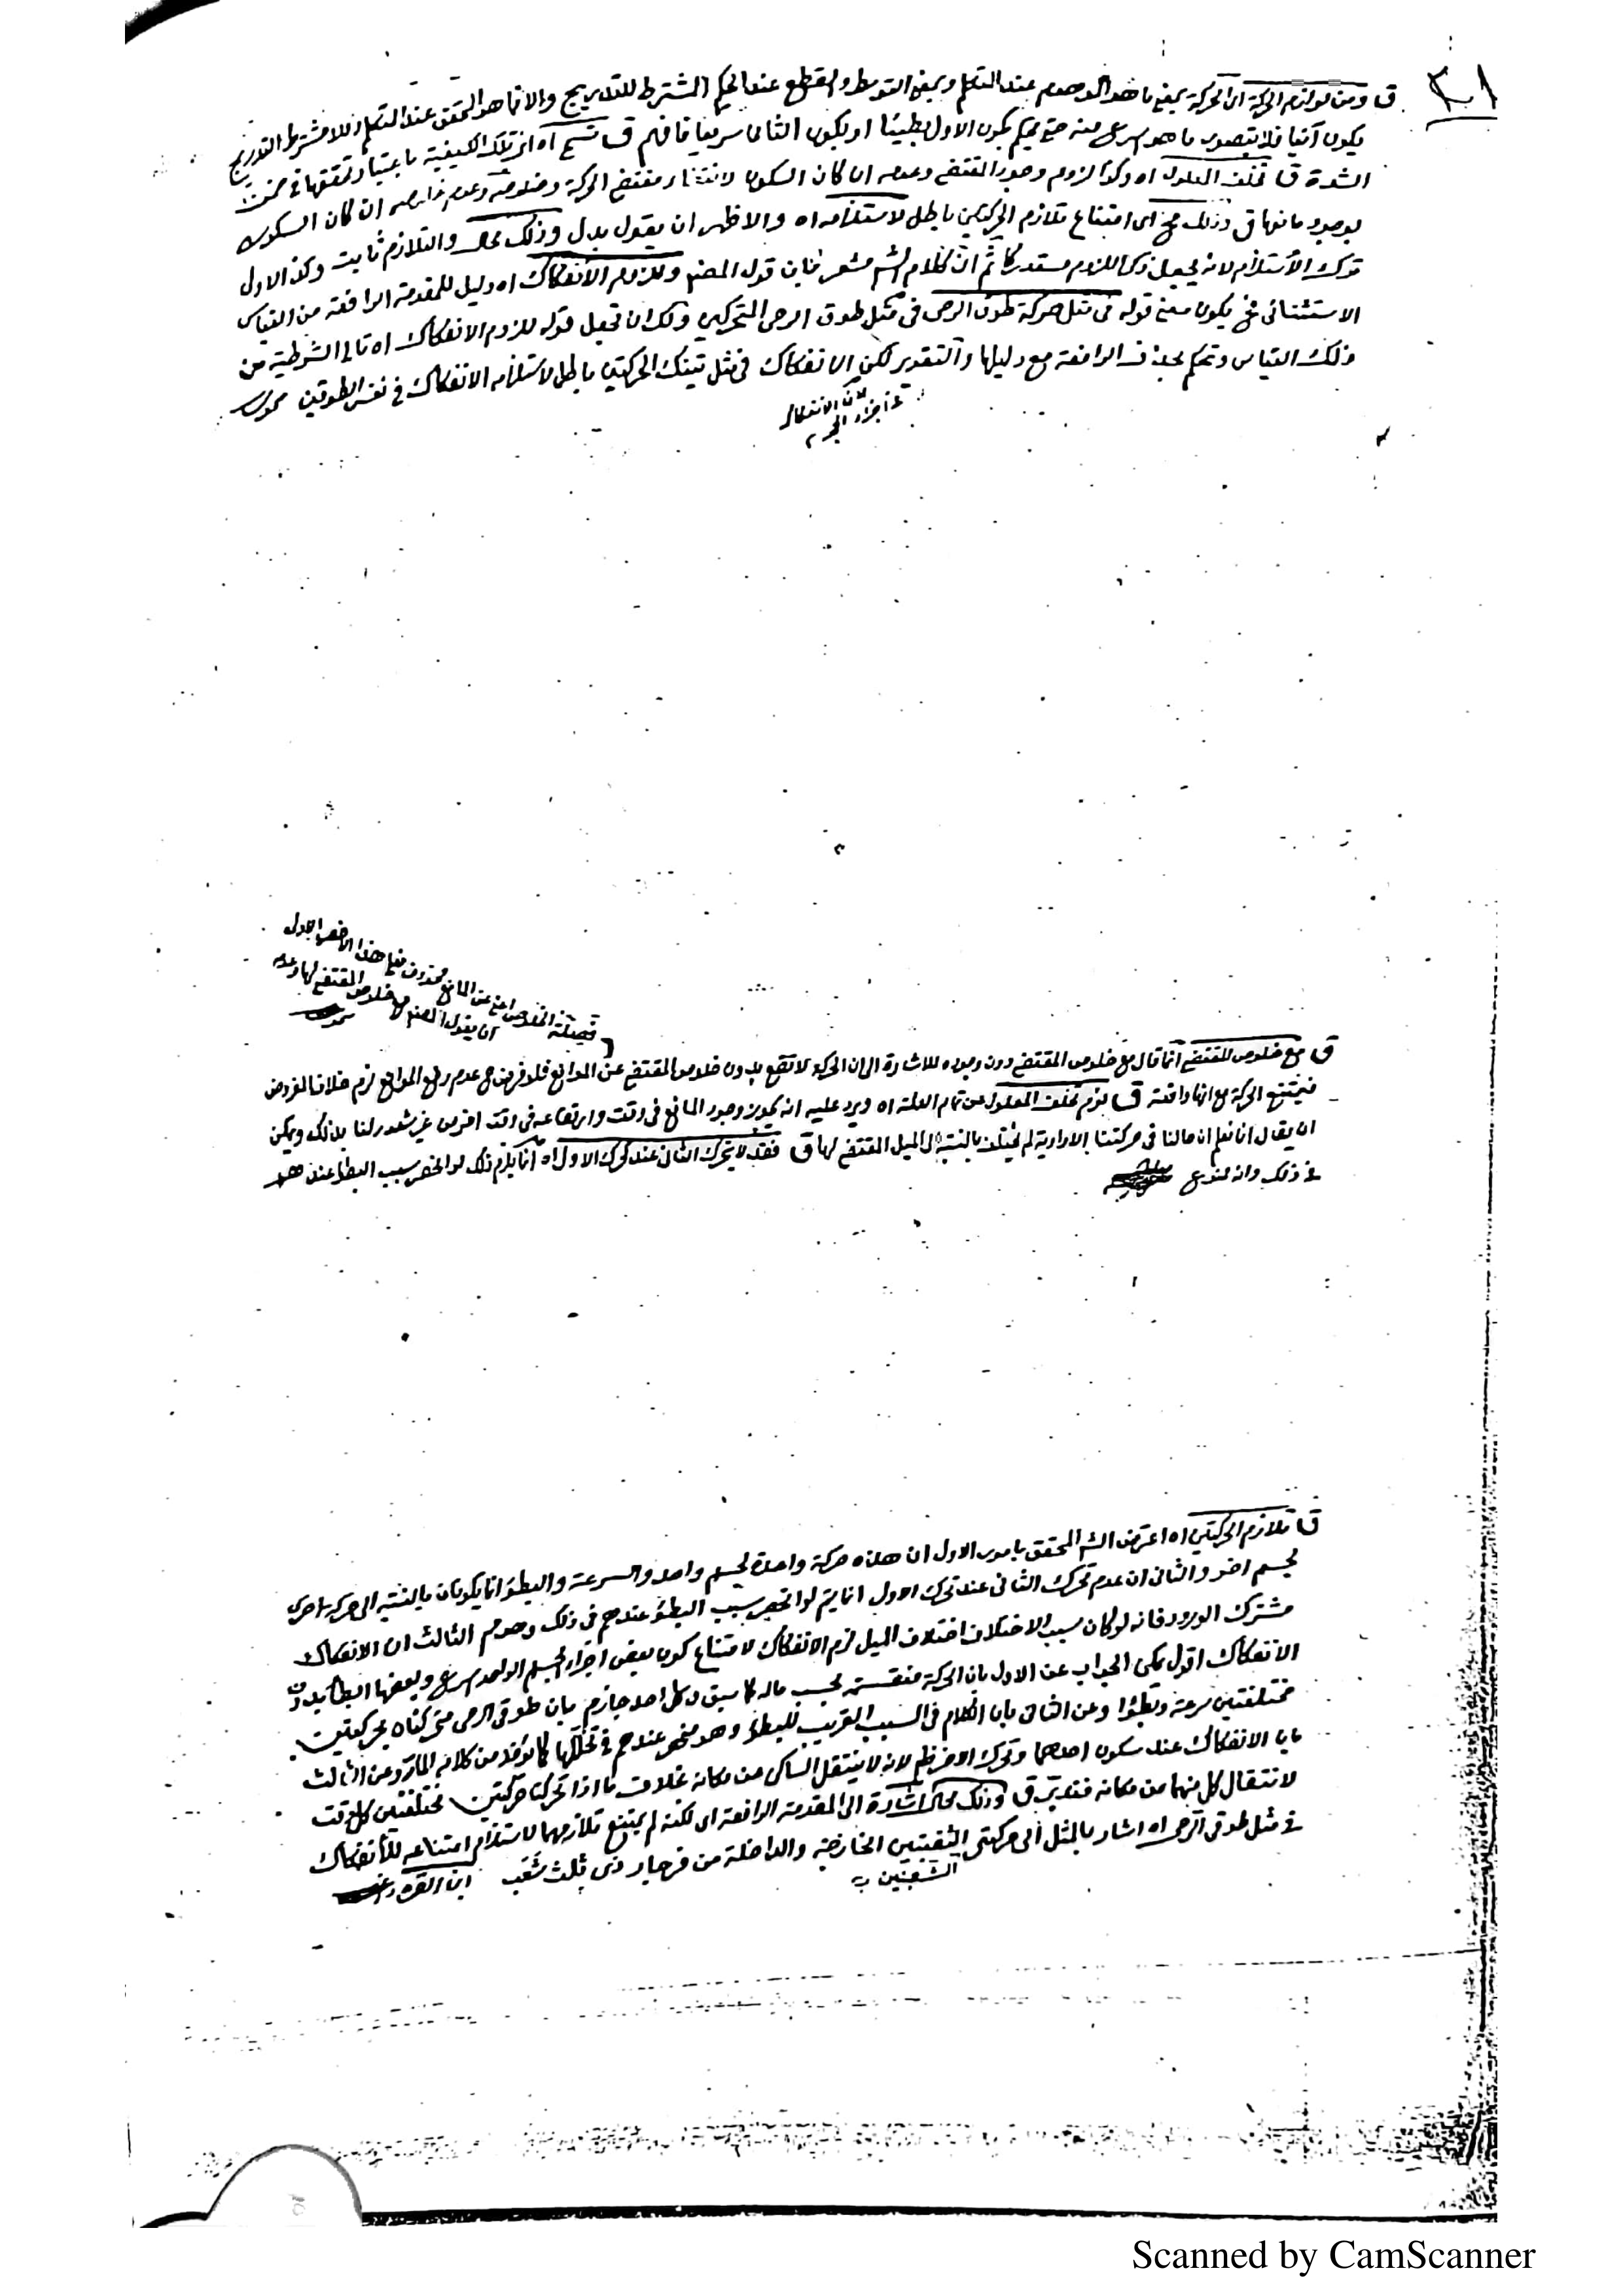 ٢١
ق ومن لوازم الحركة ان الحركة بمعنى ما هو الموهوم عند المتكلم وبمعنى التوسط والقطع عند الحكيم المشترط للتدريج والا فما هو المتحقق عند المتكلم اللامشترط التدريج
يكون آنيا فلا يتصور ما هو اسرع منه حتى يحكم بكون الاول بطيئا او يكون الثانى سريعا فافهم ق اه ان تلك الكيفية باعتبار تحققها فى ضمن
الشدة ق تخلف المعلول اه وكذا لزوم وجود المقتضى وعدمه ان كان السكون لانتفاء مقتضى الحركة وخلوصه وعدم خلوصه ان كان السكون
بوجود مانعها ق وذلك مح اى امتناع تلازم الحركتين باطل لاستلزامه اه والاظهر ان يقول بدل وذلك محال والتلازم ثابت وكذا الاول
ترك الاستلزام لانه يجعل ذكر اللزوم مستدركا ثم ان كلام الشم مشعر بان قول المصنف وللزوم الانفكاك اه دليل للمقدمة الرافعة من القياس
الاستثنائى فح يكون معنى قوله فى مثل حركة طوق الرحى فى مثل طوق الرحى المتحركين ولك ان تجعل قوله للزوم الانفكاك اه تالى الشرطية من
ذلك القياس وتحكم بحذف الرافعة مع دليلها والتقدير لكن الانفكاك فى مثل تينك الحركتين باطل لاستلزامه الانفكاك فى نفس الطوقين
لان الانفكاك
فى اجزاء الحجر م
فيصلته الخلوص اعنى عن المانع محذوف فعلى هذا الاخصر الاول
ان يقول المصنف مع خلاص المقتضى لها وعدمه
ق مع خلوص المقتضى انما قال مع خلوص المقتضى دون وجوده للاشارة الى ان الحركة لا تقع بدون خلوص المقتضى عن الموانع فلو فرض مع عدم رفع الموانع لزم خلاف المفروض
فيمتنع الحركة مع انها واقعة ق لزم تخلف المعلول عن تمام العلة اه ويرد عليه انه يجوز وجود المانع فى وقت وارتفاعه فى وقت اخر من غير شعور لنا بذلك ويمكن
ان يقال انا نعلم ان حالنا فى حركتنا الارادية لم يختلف بالنسبة الى الميل المقتضى لها ق فقد لا يتحرك الثانى عند تحرك الاول اه انما يلزم ذلك لو انحصر سبب البطؤ عندهم
فى ذلك وانه ممنوع
ق تلازم الحركتين اه اعترض الشم المحقق بامور الاول ان هذه حركة واحدة لجسم واحد والسرعة والبطؤ انما يكونان بالنسبة الى حركة اخرى
لجسم اخر والثانى ان عدم تحرك الثانى عند تحرك الاول انما يتم لو انحصر سبب البطؤ عندهم فى ذلك وهو مم الثالث ان الانفكاك
مشترك الورود فانه لو كان سبب الاختلاف اختلاف الميل لزم الانفكاك لامتناع كون بعض اجزاء الجسم الواحد اسرع وبعضها ابطأ بدون
الانفكاك اقول يمكن الجواب عن الاول بان الحركة منقسمة بحسب ماله كما سبق وكل احد جازم بان طوقى الرحى متحركتان بحركتين
مختلفتين سرعة وبطؤا وعن الثانى بان الكلام فى السبب القريب للبطؤ وهو منحصر عندهم فى تخللها كما يؤخذ من كلامه المار وعن الثالث
بان الانفكاك عند سكون احدهما وتحرك الاخر ظم لانه لا ينتقل الساكن من مكانه بخلاف ما اذا تحركا حركتين مختلفتين كل وقت
لانتقال كل منهما من مكانه فتدبر ق وذلك محال اشارة الى المقدمة الرافعة اى لكنه لم يمتنع تلازمهما لاستلزام امتناعه للانفكاك
فى مثل طوقى الرحى اه اشار بالمثل الى حركتى الشعبتين الخارجة والداخلة من فرجار ذى ثلث شعب ابن القره داغى
الشعبتين